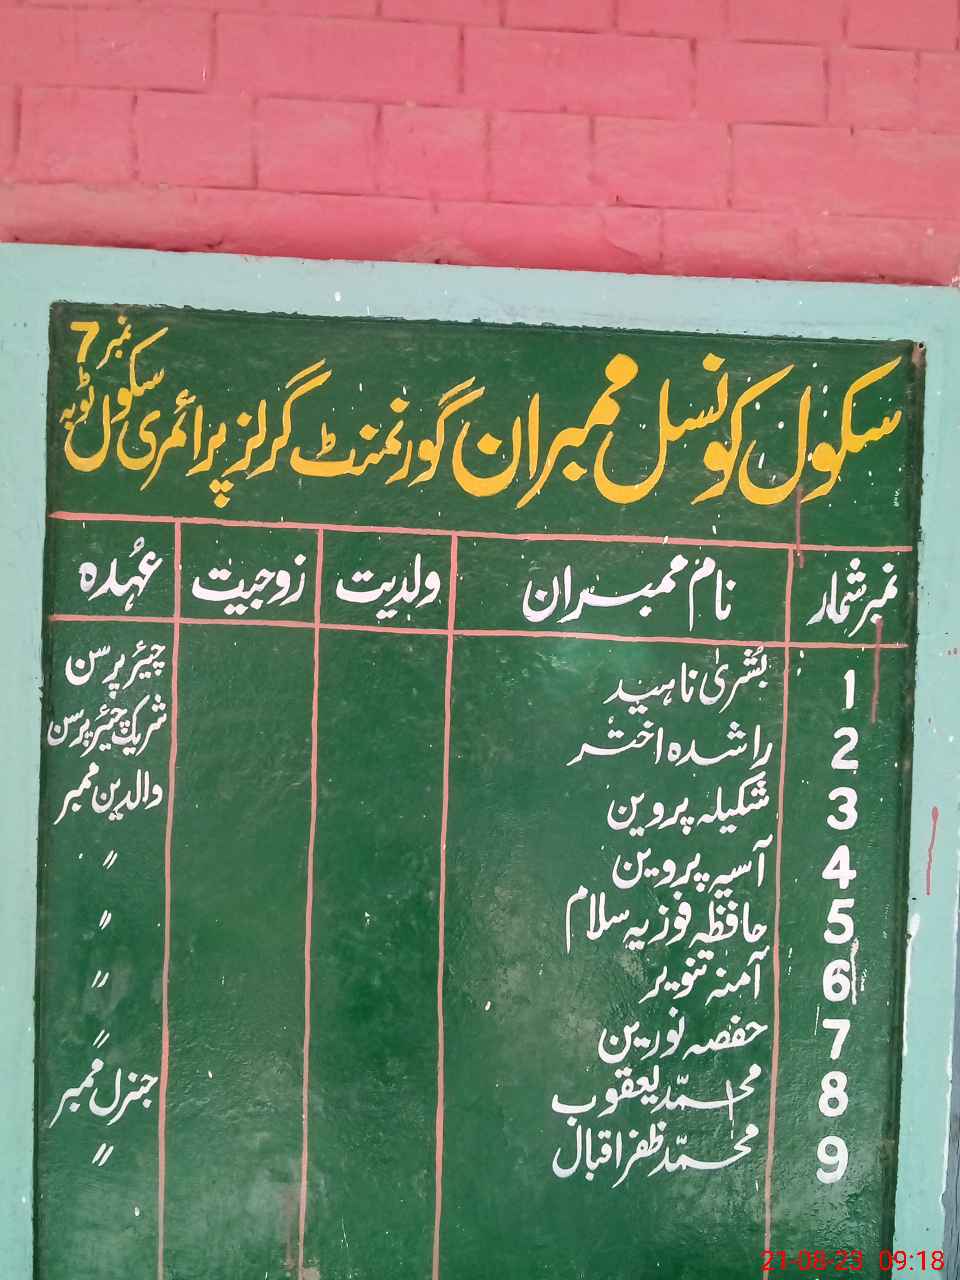 سکول کونسل ممبران گورنمنٹ گرلز پرائمری سکول نمبر 7 ٹوبہ
نمبر شمار نام ممبران ولدیت زوجیت عہدہ
1 بشریٰ ناہید چیئر پرسن
2 راشدہ اختر شریک چیئر پرسن
3 شکیلہ پروین والدین ممبر
4 آسیہ پروین 〃
5 حافظہ فوزیہ سلام 〃
6 آمنہ تنویر 〃
7 حفصہ نورین 〃
8 محمد یعقوب جنرل ممبر
9 محمد ظفر اقبال 〃
21-08-23 09:18